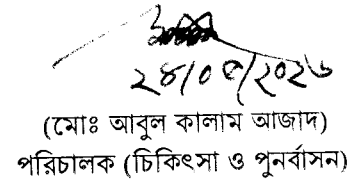 ২৪/০৫/২০২৬
(মোঃ আবুল কালাম আজাদ)
পরিচালক (চিকিৎসা ও পুনর্বাসন)